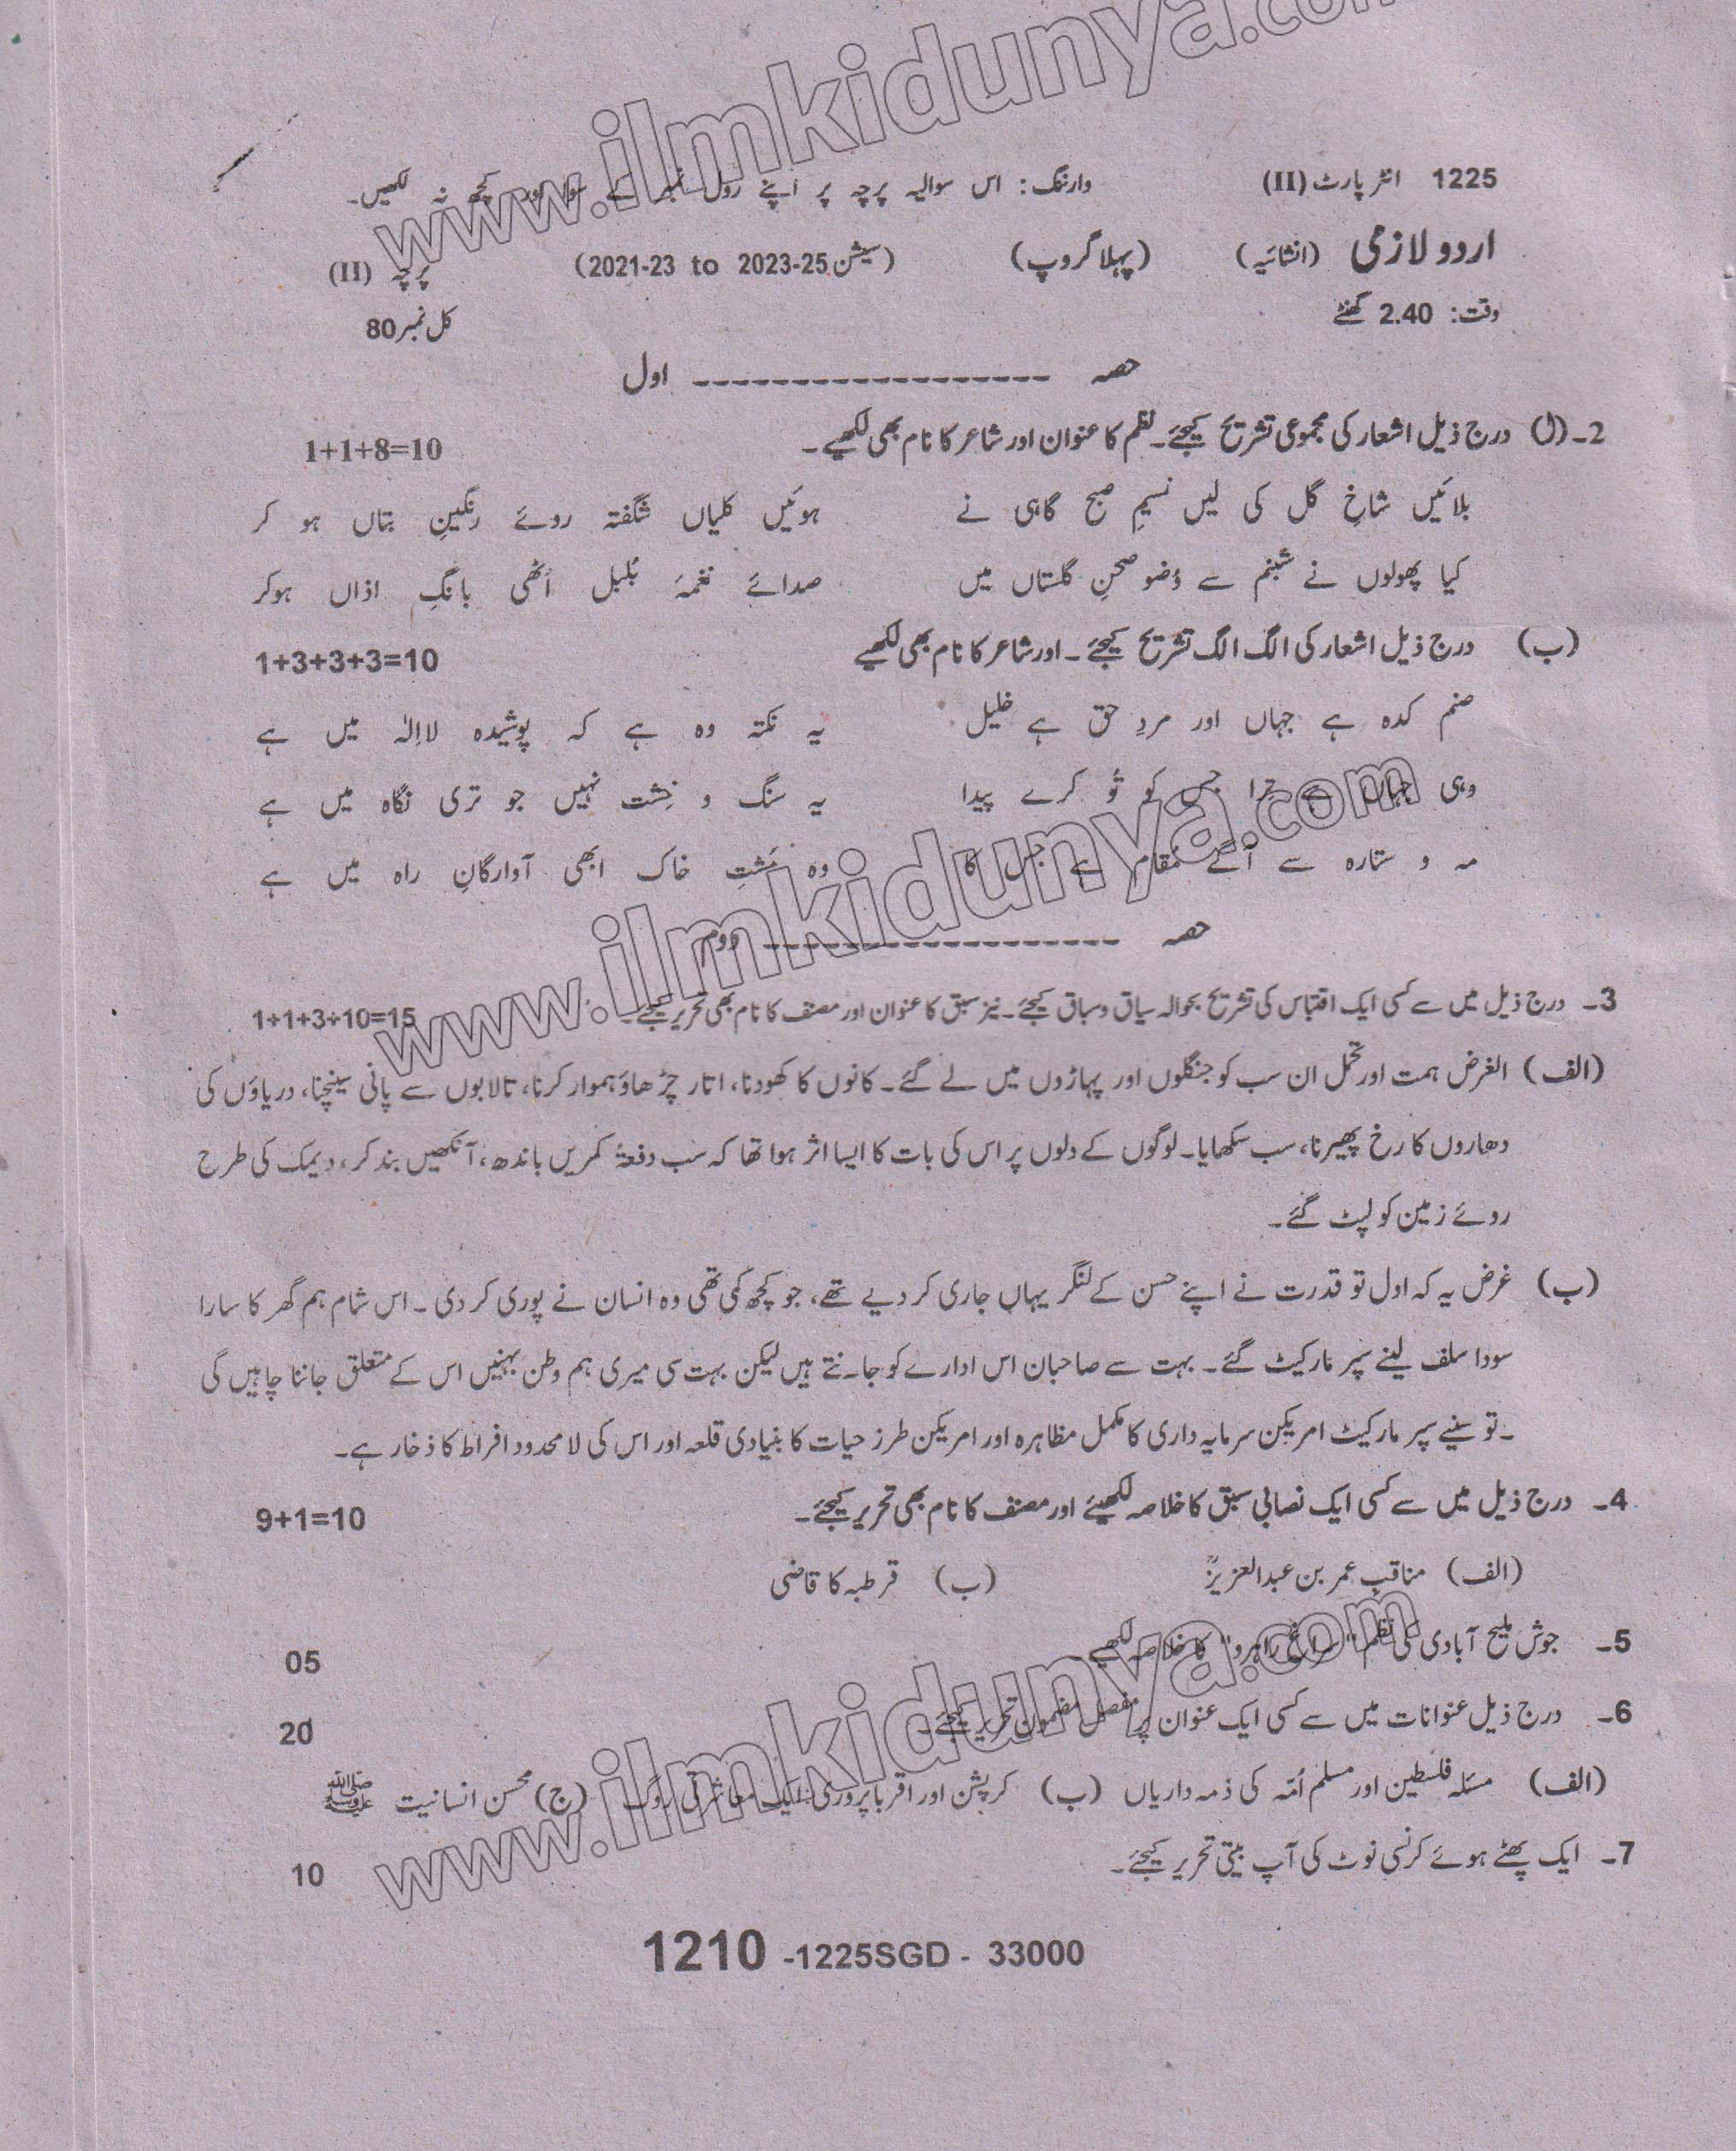 www.ilmkidunya.com
1225 انٹر پارٹ (II) وارننگ: اس سوالیہ پرچہ پر اپنے رول نمبر کے سوا اور کچھ نہ لکھیں۔
اردو لازمی (انشائیہ) (پہلا گروپ) (سیشن 2021-23 to 2023-25) پرچہ (II)
وقت: 2.40 گھنٹے کل نمبر 80
حصہ ------------------ اول
2۔ (ا) درج ذیل اشعار کی مجموعی تشریح کیجئے۔ نظم کا عنوان اور شاعر کا نام بھی لکھیے۔ 1+1+8=10
بلائیں شاخِ گل کی لیں نسیمِ صبح گاہی نے ہوئیں کلیاں شگفتہ روئے رنگینِ بتاں ہو کر
کیا پھولوں نے شبنم سے وُضو صحنِ گلستاں میں صدائے نغمۂ بُلبل اُٹھی بانگِ اذاں ہوکر
(ب) درج ذیل اشعار کی الگ الگ تشریح کیجئے۔ اور شاعر کا نام بھی لکھیے 1+3+3+3=10
صنم کدہ ہے جہاں اور مردِ حق ہے خلیل یہ نکتہ وہ ہے کہ پوشیدہ لاالٰہ میں ہے
وہی جہاں ہے ترا جس کو تُو کرے پیدا یہ سنگ و خِشت نہیں جو تری نگاہ میں ہے
مہ و ستارہ سے آگے مقام ہے جس کا وہ مُشتِ خاک ابھی آوارگانِ راہ میں ہے
حصہ ------------------ دوم
www.ilmkidunya.com
3۔ درج ذیل میں سے کسی ایک اقتباس کی تشریح بحوالہ سیاق و سباق کیجئے۔ نیز سبق کا عنوان اور مصنف کا نام بھی تحریر کیجئے۔ 1+1+3+10=15
(الف) الغرض ہمت اور تحمل ان سب کو جنگلوں اور پہاڑوں میں لے گئے۔ کانوں کا کھودنا، اتار چڑھاؤ ہموار کرنا، تالابوں سے پانی سینچنا، دریاؤں کی
دھاروں کا رخ پھیرنا، سب سکھایا۔ لوگوں کے دلوں پر اس کی بات کا ایسا اثر ہوا تھا کہ سب دفعۃً کمریں باندھ، آنکھیں بند کر، دیمک کی طرح
روئے زمین کو لپٹ گئے۔
(ب) غرض یہ کہ اول تو قدرت نے اپنے حسن کے لنگر یہاں جاری کر دیے تھے، جو کچھ کمی تھی وہ انسان نے پوری کر دی۔ اس شام ہم گھر کا سارا
سودا سلف لینے سپر مارکیٹ گئے۔ بہت سے صاحبان اس ادارے کو جانتے ہیں لیکن بہت سی میری ہم وطن بہنیں اس کے متعلق جاننا چاہیں گی
۔ تو سنیے سپر مارکیٹ امریکن سرمایہ داری کا مکمل مظاہرہ اور امریکن طرز حیات کا بنیادی قلعہ اور اس کی لامحدود افراط کا ذخار ہے۔
4۔ درج ذیل میں سے کسی ایک نصابی سبق کا خلاصہ لکھیئے اور مصنف کا نام بھی تحریر کیجئے۔ 9+1=10
(الف) مناقبِ عمر بن عبدالعزیزؒ (ب) قرطبہ کا قاضی
5۔ جوش ملیح آبادی کی نظم "سراغِ راہرو" کا خلاصہ لکھیے 05
6۔ درج ذیل عنوانات میں سے کسی ایک عنوان پر مفصل مضمون تحریر کیجئے۔ 20
(الف) مسئلہ فلسطین اور مسلم اُمّہ کی ذمہ داریاں (ب) کرپشن اور اقربا پروری ایک معاشرتی روگ (ج) محسنِ انسانیت ﷺ
7۔ ایک پھٹے ہوئے کرنسی نوٹ کی آپ بیتی تحریر کیجئے۔ 10
www.ilmkidunya.com
1210 -1225SGD - 33000